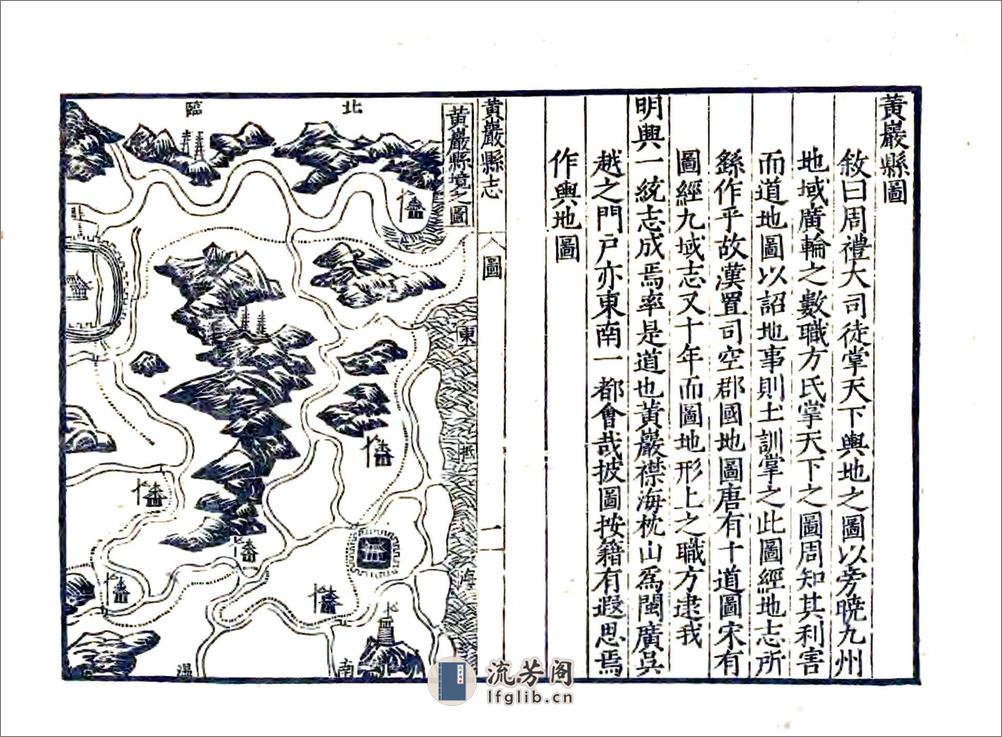 黃巖縣圖
敘曰周禮大司徒掌天下輿地之圖以旁曉九州
地域廣輪之數職方氏掌天下之圖周知其利害
而道地圖以詔地事則土訓掌之此圖經地志所
繇作乎故漢置司空郡國地圖唐有十道圖宋有
圖經九域志又十年而圖地形上之職方逮我
明興一統志成焉率是道也黃巖襟海枕山爲閩廣吳
越之門戶亦東南一都會哉披圖按籍有遐思焉
作輿地圖
黃巖縣志
圖
一
黃巖縣境之圖
北
臨
東
海
南
流芳阁
lfglib.cn